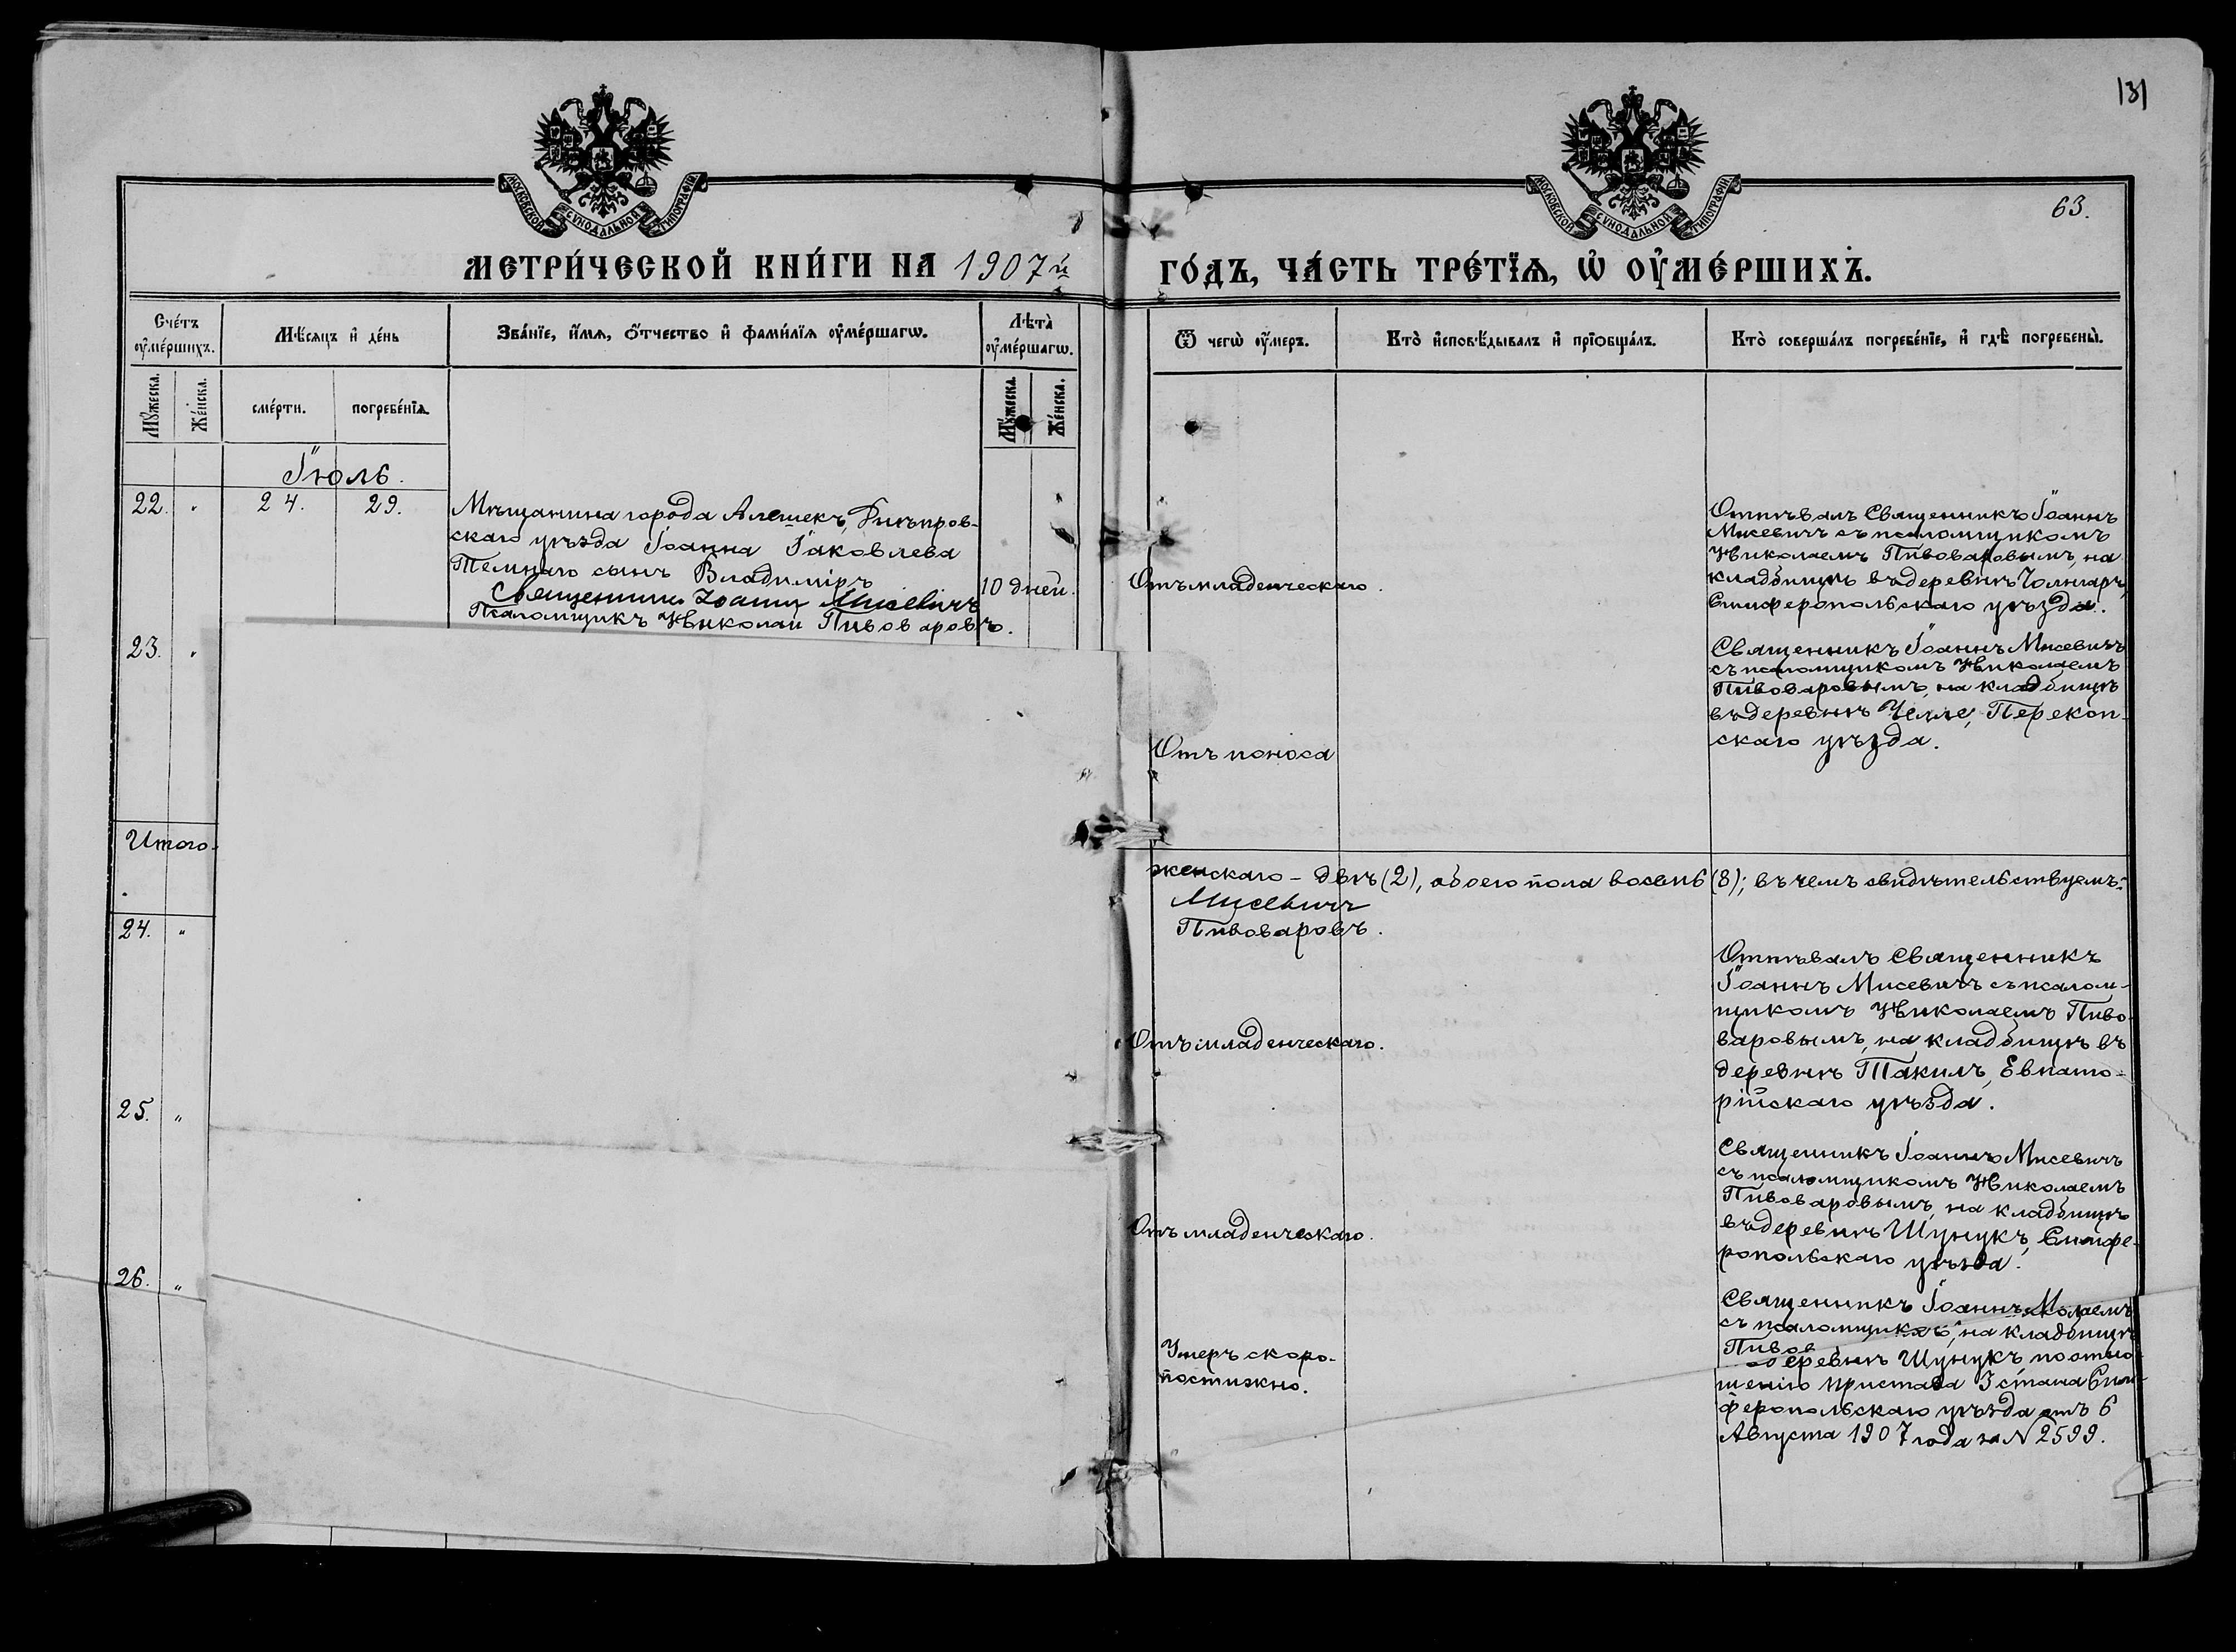 131
МОСКОВСКОЙ СѴНОДАЛЬНОЙ ТИПОГРАФІИ
МОСКОВСКОЙ СѴНОДАЛЬНОЙ ТИПОГРАФІИ
63.
МЕТРИ́ЧЕСКОЙ КНИ́ГИ НА 1907 й
ГО́ДЪ, ЧА́СТЬ ТРЕ́ТІѦ, Ѡ҆ ОУ҆МЕ́РШИХЪ.
Сче́тъ оу҆ме́ршихъ.
Мѣ́сяцъ и҆ де́нь
Зва́нїе, и҆́мѧ, ѻ҆́тчество и҆ фами́лїѧ оу҆ме́ршагѡ.
Лѣта̀ оу҆ме́ршагѡ.
Ѿ чегѡ̀ оу҆́меръ.
Кто̀ и҆сповѣ́дывалъ и҆ прїѻбща́лъ.
Кто̀ соверша́лъ погребе́нїе, и҆ гдѣ̀ погребены̀.
Мꙋ́жеска.
Же́нска.
сме́рти.
погребе́нїѧ.
Мꙋ́жеска.
Же́нска.
Іюль.
22. " 24. 29.
Мѣщанина города Алешекъ, Днѣпров-
скаго уѣзда Іоанна Іаковлева
Темнаго сынъ Владиміръ
10 дней.
Священникъ Іоаннъ Мисевичъ
Псаломщикъ Николай Пивоваровъ.
Отъ младенческаго.
Отпѣвалъ Священникъ Іоаннъ
Мисевичъ съ псаломщикомъ
Николаемъ Пивоваровымъ, на
кладбищѣ въ деревнѣ Чонгаръ,
Симферопольскаго уѣзда.
23. "
Отъ поноса
Священникъ Іоаннъ Мисевичъ
съ псаломщикомъ Николаемъ
Пивоваровымъ, на кладбищѣ
въ деревнѣ Челле, Перекоп-
скаго уѣзда.
Итого
женскаго - двѣ (2), обоего пола восемь (8); въ чемъ свидѣтельствуемъ:
Мисевичъ
Пивоваровъ.
24. "
Отъ младенческаго.
Отпѣвалъ Священникъ
Іоаннъ Мисевичъ съ псалом-
щикомъ Николаемъ Пиво-
варовымъ, на кладбищѣ въ
деревнѣ Такилъ, Евпато-
рійскаго уѣзда.
25. "
Отъ младенческаго.
Священникъ Іоаннъ Мисевичъ
съ псаломщикомъ Николаемъ
Пивоваровымъ, на кладбищѣ
въ деревнѣ Шунукъ, Симфе-
ропольскаго уѣзда.
26. "
Умеръ скоро-
постижно.
Священникъ Іоаннъ
съ псаломщик на кладбищѣ
Пивов
деревнѣ Шунукъ по отно-
шенію пристава 3 стана Сим-
феропольскаго уѣзда отъ 6
Августа 1907 года за N 2599.